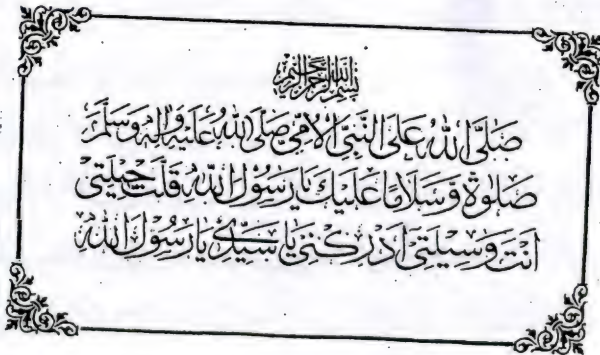 بسم الله الرحمن الرحيم
صَلَّى اللهُ عَلَى النَّبِيِّ الْأُمِّيِّ صَلَّى اللهُ عَلَيْهِ وَاٰلِهٖ وَسَلَّمَ
صَلٰوةً وَّسَلَامًا عَلَيْكَ يَا رَسُوْلَ اللّٰهِ قَلَّتْ حِيْلَتِيْ
اَنْتَ وَسِيْلَتِيْ اَدْرِكْنِيْ يَا سَيِّدِيْ يَا رَسُوْلَ اللّٰهِ